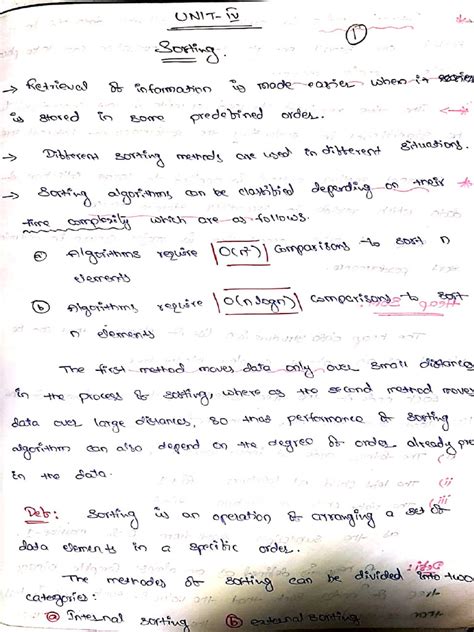 UNIT-IV
①
Sorting.
→ Retrieval of information is made easier when it
is stored in some predefined order.
→ Different sorting methods are used in different situations.
→ Sorting algorithms can be classified depending on their
time complexity which are as follows.
ⓐ Algorithms require O(n²) comparisons to sort n
elements
ⓑ Algorithms require O(n logn) comparisons to sort
n elements
The first method moves data only over small distances
in the process of sorting, where as the second method moves
data over large distances, so that performance of sorting
algorithm can also depend on the degree of order already pre
in the data.
Def: Sorting is an operation of arranging a set of
data elements in a specific order.
The methods of sorting can be divided into two
categories:
ⓐ Internal sorting ⓑ external sorting